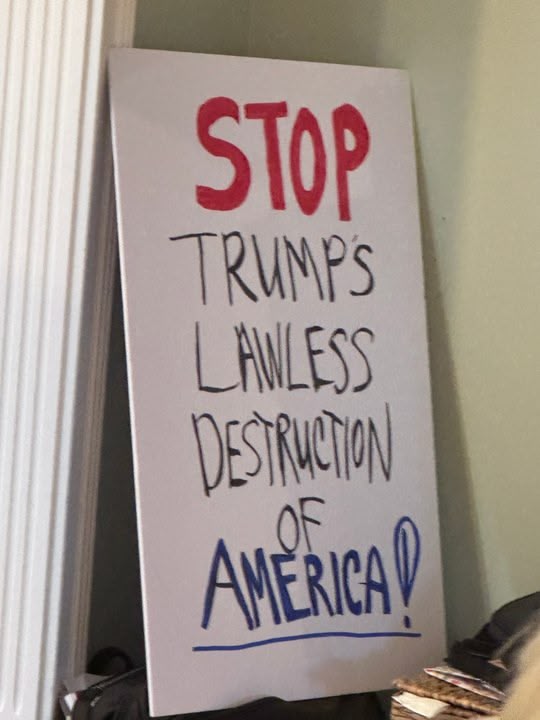 STOP
TRUMP'S
LAWLESS
DESTRUCTION
OF
AMERICA!